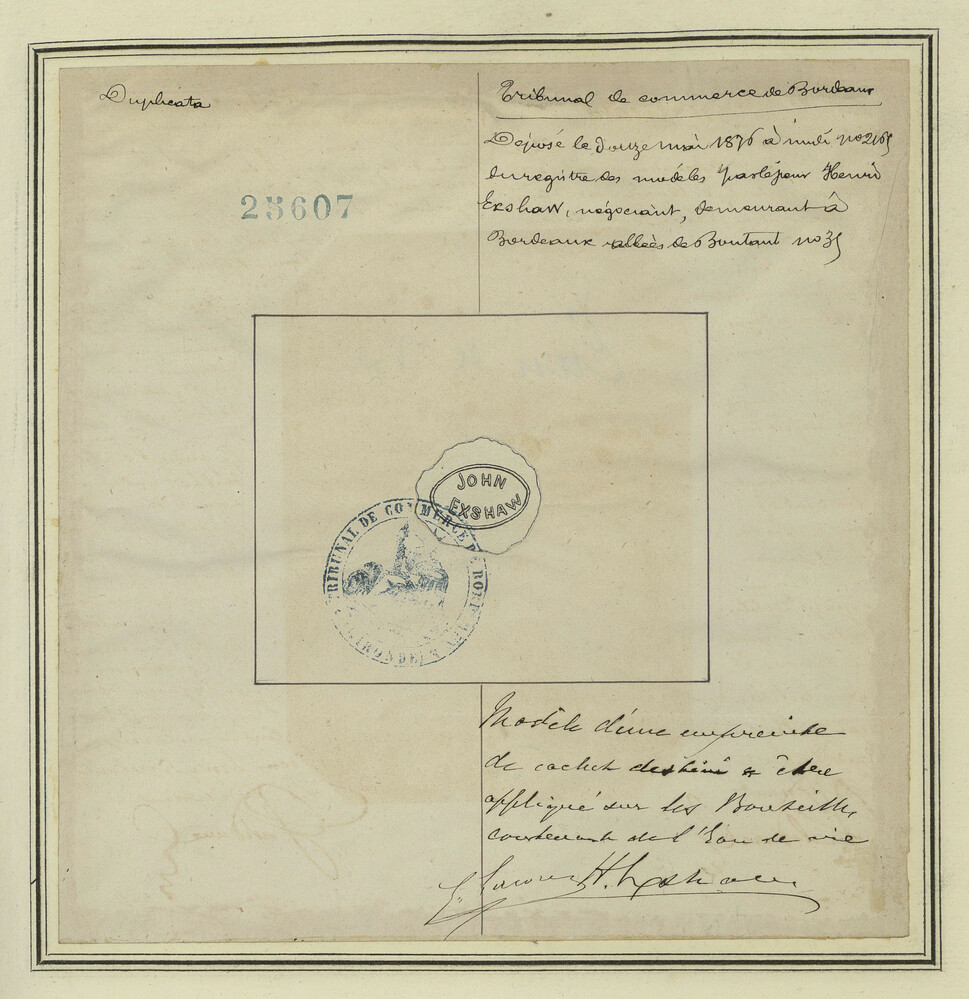 Duplicata
25607
Tribunal de commerce de Bordeaux
Déposé le douze mai 1876 à midi no 2165
du registre des modèles par le sieur Henri
Exshaw, négociant, demeurant à
Bordeaux allées de Boutaut no 35
JOHN
EXSHAW
TRIBUNAL DE COMMERCE DE BORDEAUX
GIRONDE
Modèle d'une empreinte
de cachet destiné à être
appliqué sur les Bouteilles
contenant de l'Eau de vie
H. Exshaw